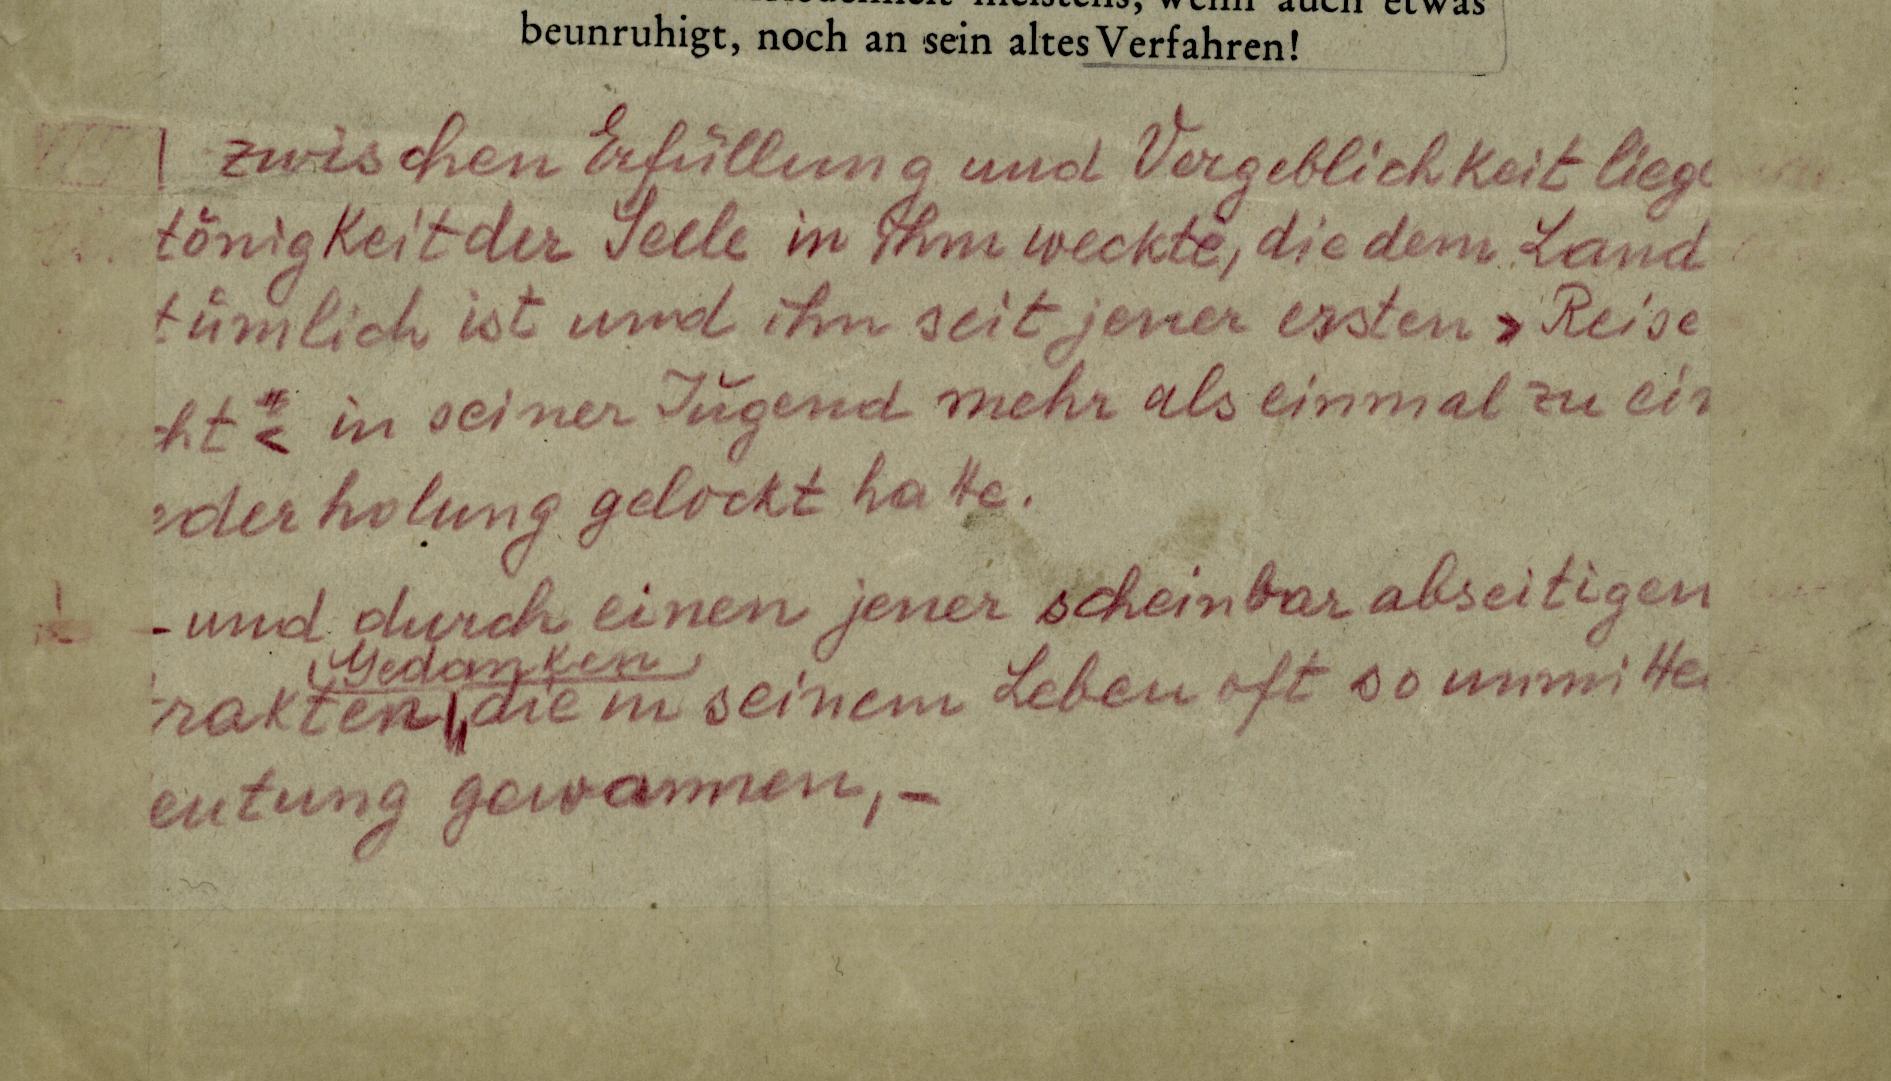 meistens, wenn auch etwas
beunruhigt, noch an sein altes Verfahren!
zwischen Erfüllung und Vergeblichkeit liege
tönigkeit der Seele in ihm weckte, die dem Land
tümlich ist und ihn seit jener ersten > Reise
cht" < in seiner Jugend mehr als einmal zu ein
ederholung gelockt hatte.
- und durch einen jener scheinbar abseitigen
Gedanken
rakten, die in seinem Leben oft so unmittel
eutung gewannen, -